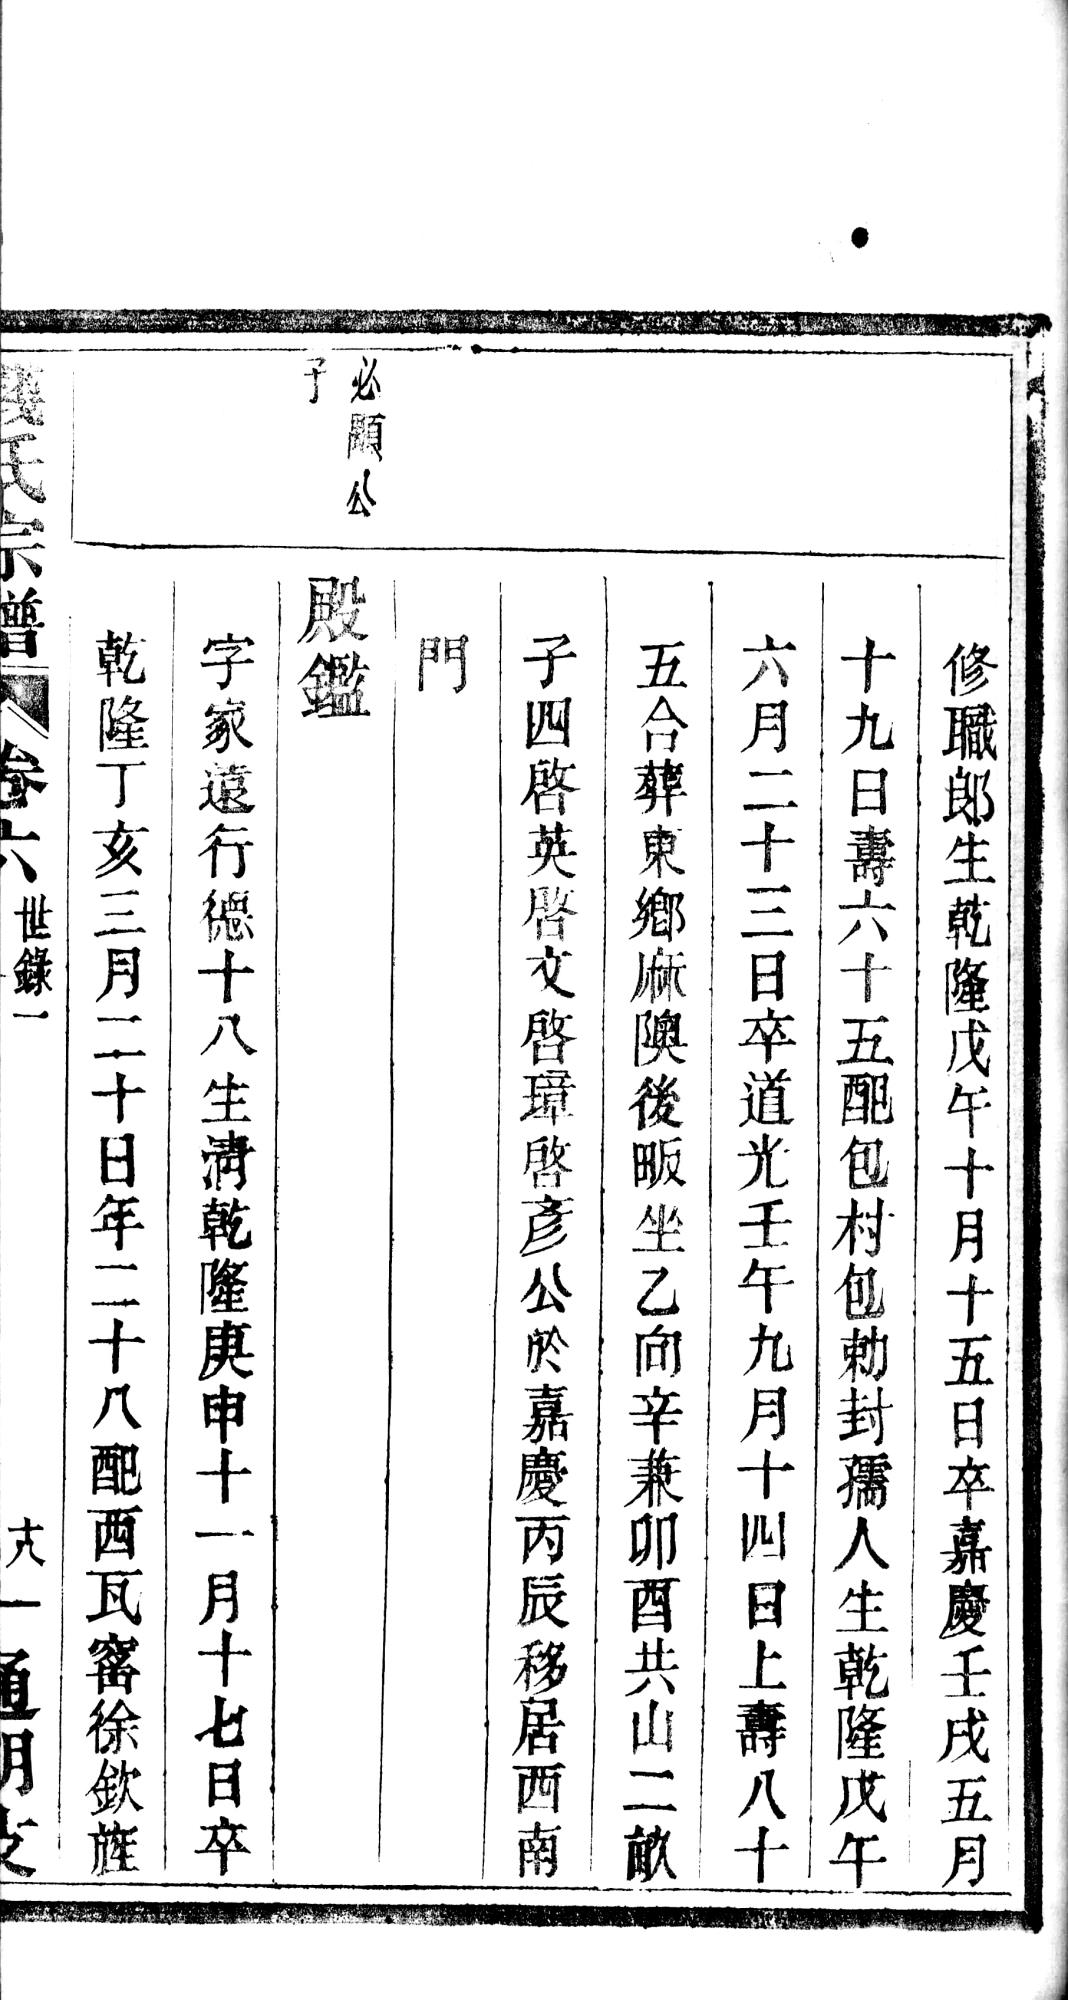 修職郎生乾隆戊午十月十五日卒嘉慶壬戌五月
十九日壽六十五配包村包勅封孺人生乾隆戊午
六月二十三日卒道光壬午九月十四日上壽八十
五合葬東鄉麻隩後畈坐乙向辛兼卯酉共山二畝
子四啓英啓文啓璋啓彥公於嘉慶丙辰移居西南
門
必顯公
子
殿鑑
字家遠行德十八生清乾隆庚申十一月十七日卒
乾隆丁亥三月二十日年二十八配西瓦窰徐欽旌
氏宗譜
卷六
世錄一
十八
通明支